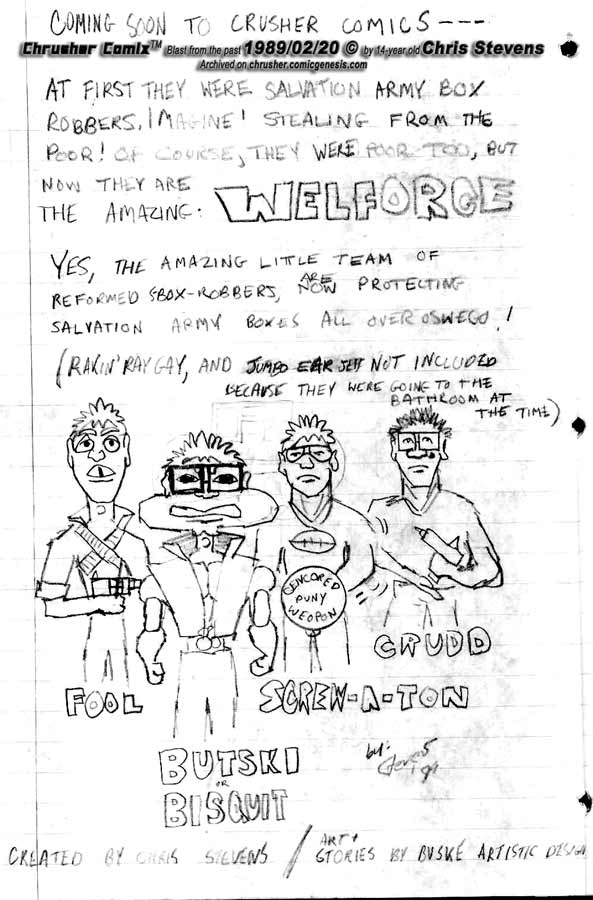 COMING SOON TO CRUSHER COMICS ---
Chrusher Comix™ Blast from the past 1989/02/20 © by 14-year old Chris Stevens
Archived on chrusher.comicgenesis.com
AT FIRST THEY WERE SALVATION ARMY BOX
ROBBERS. IMAGINE! STEALING FROM THE
POOR! OF COURSE, THEY WERE POOR TOO, BUT
NOW THEY ARE
THE AMAZING: WELFORCE
YES, THE AMAZING LITTLE TEAM OF
REFORMED SBOX-ROBBERS, ARE NOW PROTECTING
SALVATION ARMY BOXES ALL OVER OSWEGO!
(RAKIN' RAY GAY, AND JUMBO EAR JEFF NOT INCLUDED
BECAUSE THEY WERE GOING TO THE
BATHROOM AT
THE TIME)
CENCORED
PUNY
WEOPON
CRUDD
FOOL
SCREW-A-TON
BUTSKI
OR
BISQUIT
by:
CREATED BY CHRIS STEVENS / ART +
STORIES BY BUSKÉ ARTISTIC DESIGN